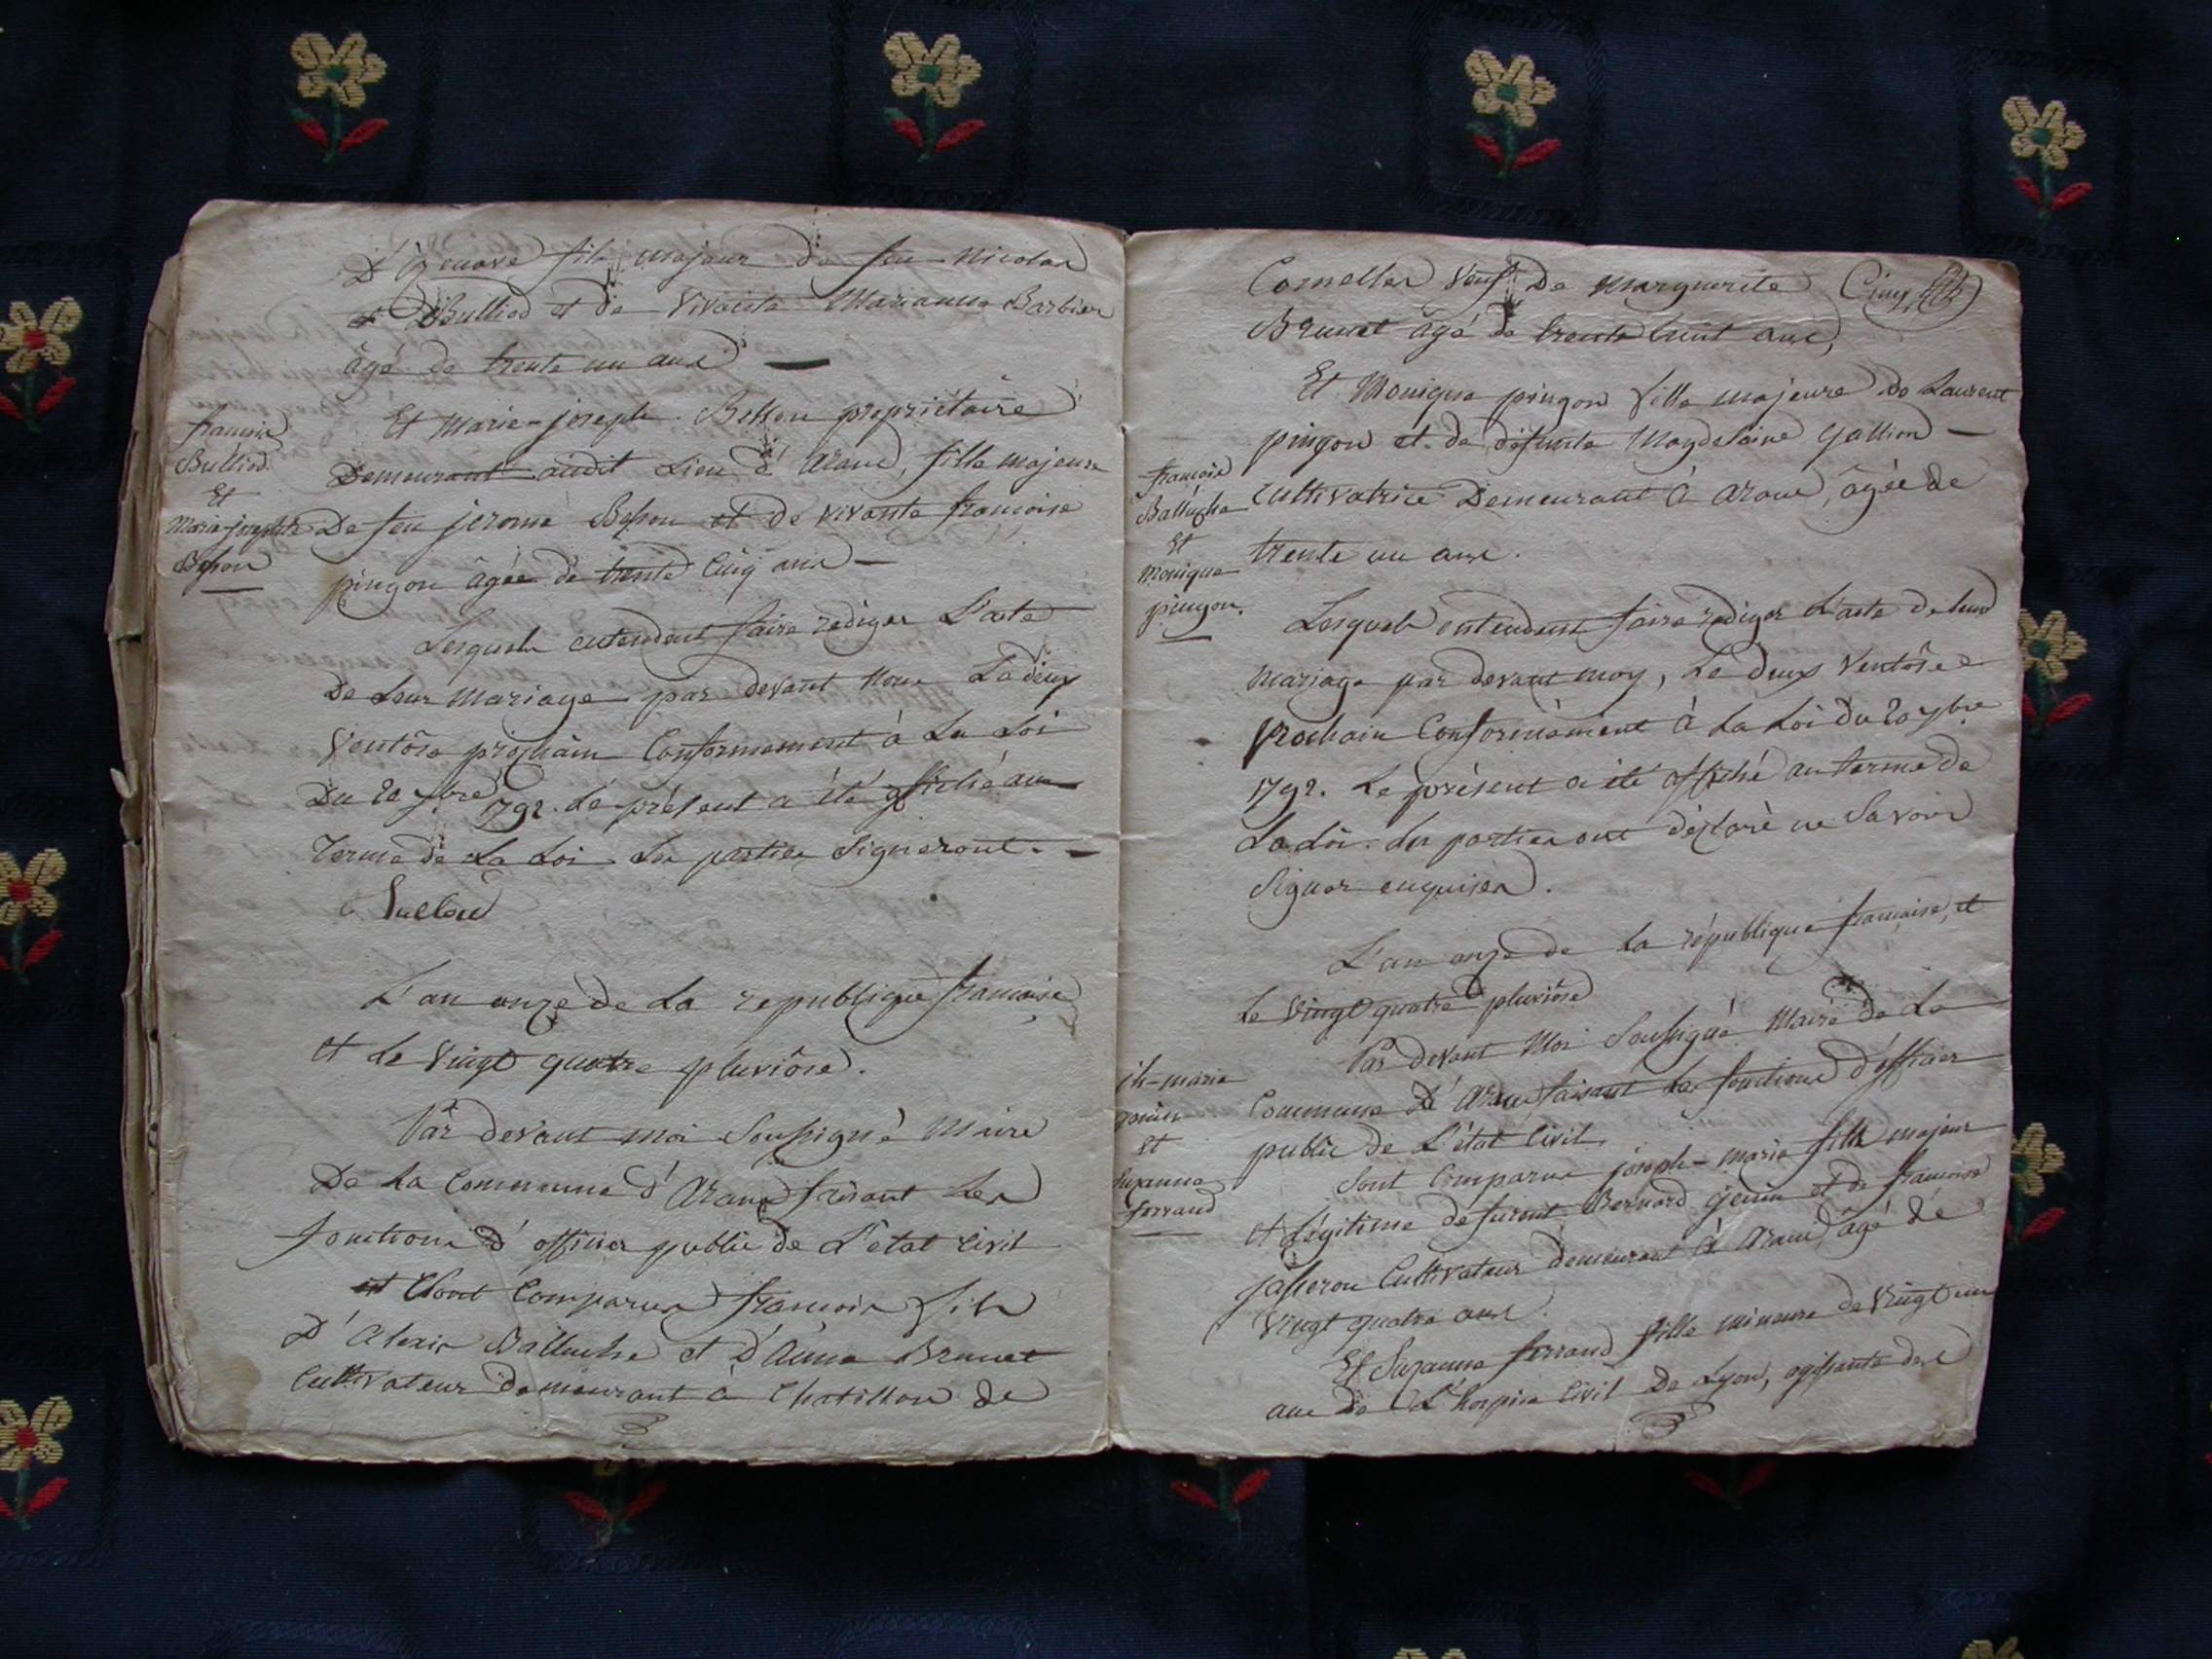 D'izenave fils majeur de feu Nicolas
Bulliod et de vivante Marianne Barbier
âgé de trente un ans —
françois
Bulliod
Et
Marie-josephte
Besson
Et Marie-joseph Besson propriétaire
Demeurant audit Lieu d'aranc, fille majeure
De feu jerome Besson et de vivante françoise
pingon âgée de trente cinq ans —
Lesquels entendent faire rediger L'acte
De Leur Mariage par devant nous Le deux
Ventôse prochain Conformement à La Loi
Du 20 7bre 1792. Le présent a été affiché au
Terme de La Loi Les parties Signeront. —
L'an onze de La republique francaise
et Le vingt quatre pluviôse.
Par devant moi Soussigné Maire
De La Commune d'Aranc faisant Les
fonctions d'officier public de L'état Civil
Sont Comparus françois fils
D'Alexis Balluche et d'Anne Brunet
Cultivateur demeurant à Chatillon de
Cornelles veuf De Marguerite Cinq
Brunet âgé de trente huit ans,
françois
Balluche
Et
Monique
pingon.
Et Monique pingon fille majeure de Laurent
pingon et de défunte Magdelaine Gallion —
Cultivatrice Demeurant à Aranc, âgée de
trente un ans.
Lesquels entendent faire rediger L'acte de leur
Mariage par devant moy, Le deux Ventôse
prochain Conformément à La Loi Du 20 7bre
1792. Le présent a été affiché au terme de
La Loi. Les parties ont déclaré ne Savoir
Signer enquises.
L'an onze de La république française, et
Le vingt quatre pluviôse
jh-marie
genin
Et
Suzanne
ferrand
Par devant Moi Soussigné Maire de La
Commune D'Aranc faisant Les fonctions d'officier
public de L'état Civil
Sont Comparus joseph-marie fils majeur
et Légitime de furent Bernard genin et de françoise
Jasseron Cultivateur demeurant à Aranc, âgé de
vingt quatre ans.
Et Suzanne ferrand fille mineure de vingt un
ans de L'hospice Civil De Lyon, agissante de